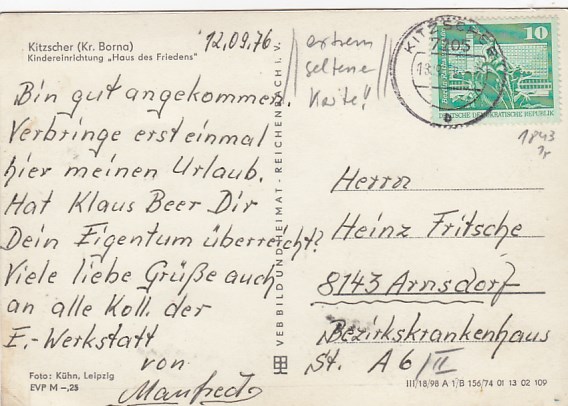 Kitzscher (Kr. Borna)
Kindereinrichtung „Haus des Friedens"
12.09.76
extrem
seltene
Karte!!
KITZSCHER
7205
b
10
DEUTSCHE DEMOKRATISCHE REPUBLIK
1843
Bin gut angekommen.
Verbringe erst einmal
hier meinen Urlaub.
Hat Klaus Beer Dir
Dein Eigentum überreicht?
Viele liebe Grüße auch
an alle Koll. der
E.-Werkstatt
von
Manfred
VEB BILD UND HEIMAT · REICHENBACH I. V.
Herrn
Heinz Fritsche
8143 Arnsdorf
Bezirkskrankenhaus
St. A 6/II
Foto: Kühn, Leipzig
EVP M –,25
III/18/98 A 1/B 156/74 01 13 02 109